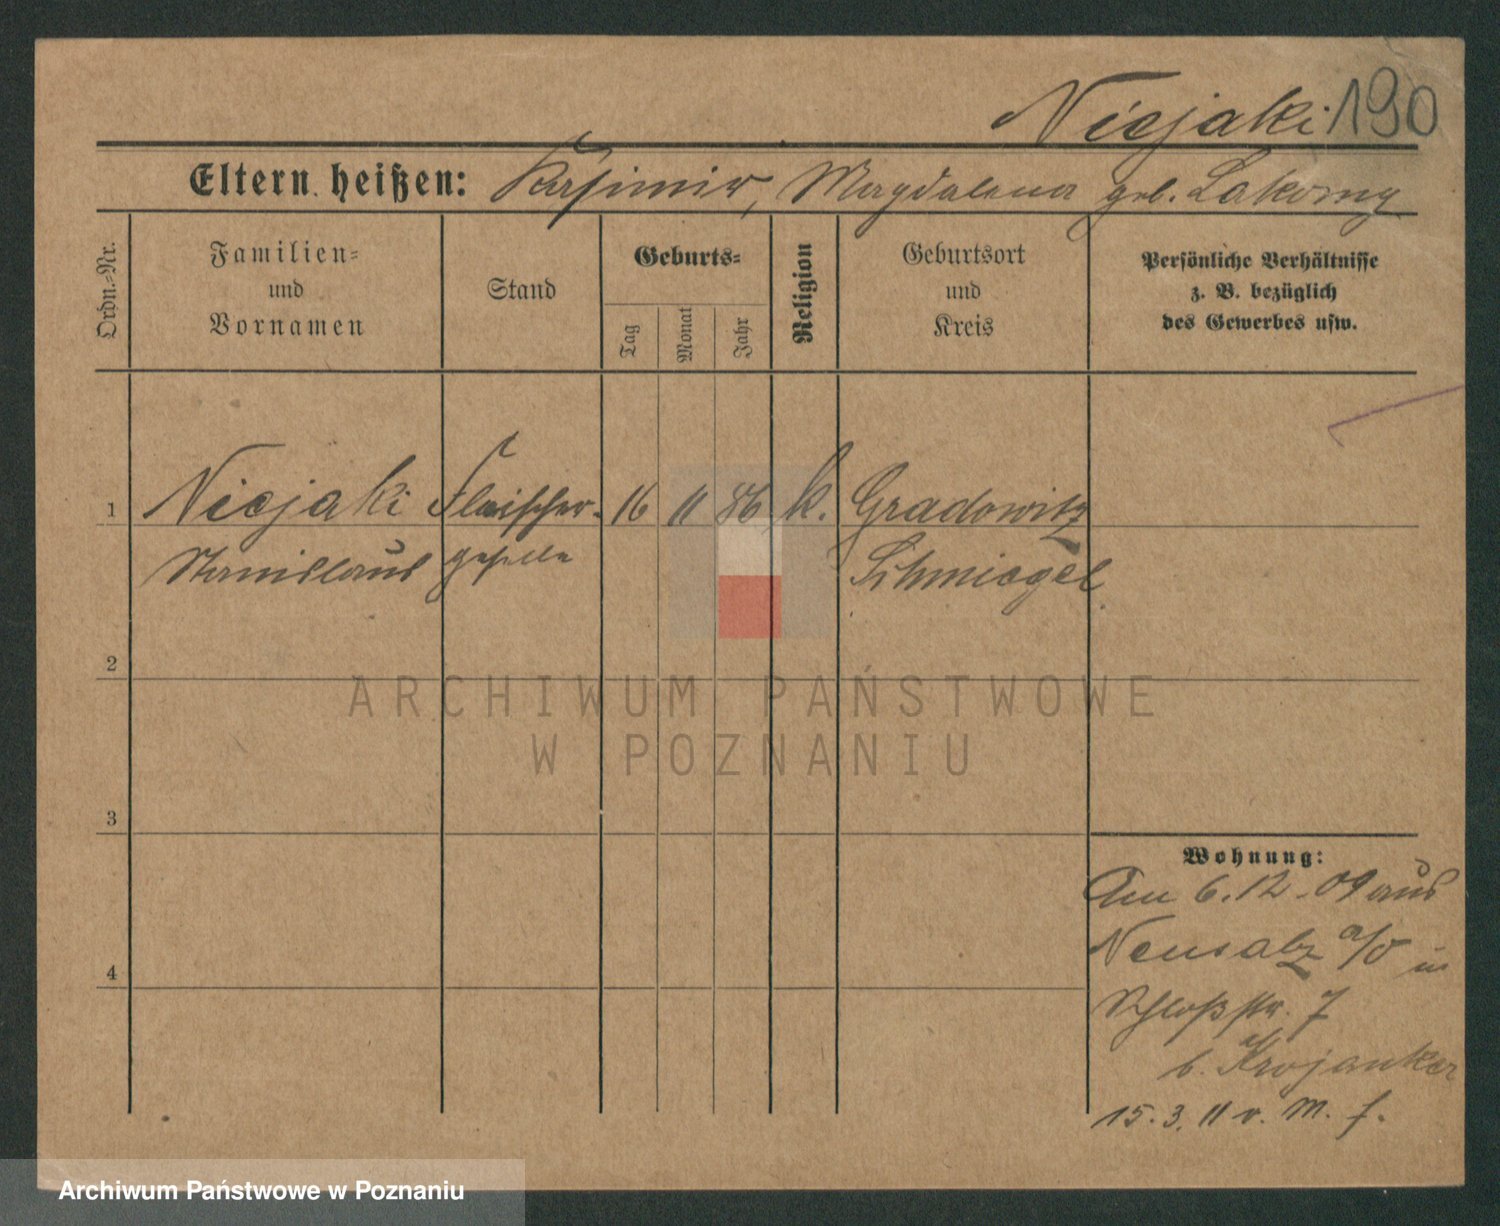 Niejaki 190
Eltern heißen: Kasimir, Magdalena geb. Lakomy
Ordn.-Nr.
Familien-
und
Vornamen
Stand
Geburts-
Tag
Monat
Jahr
Religion
Geburtsort
und
Kreis
Persönliche Verhältnisse
z. B. bezüglich
des Gewerbes usw.
1 Niejaki Fleischer- 16 11 86 k. Gradowitz
Stanislaus geselle Schmiegel
2
ARCHIWUM PAŃSTWOWE
W POZNANIU
3
Wohnung:
Am 6.12.09 aus
Neusalz a/O in
4
Schloßstr. 7
b. Krojanker
15.3.11 v. M. f.
Archiwum Państwowe w Poznaniu